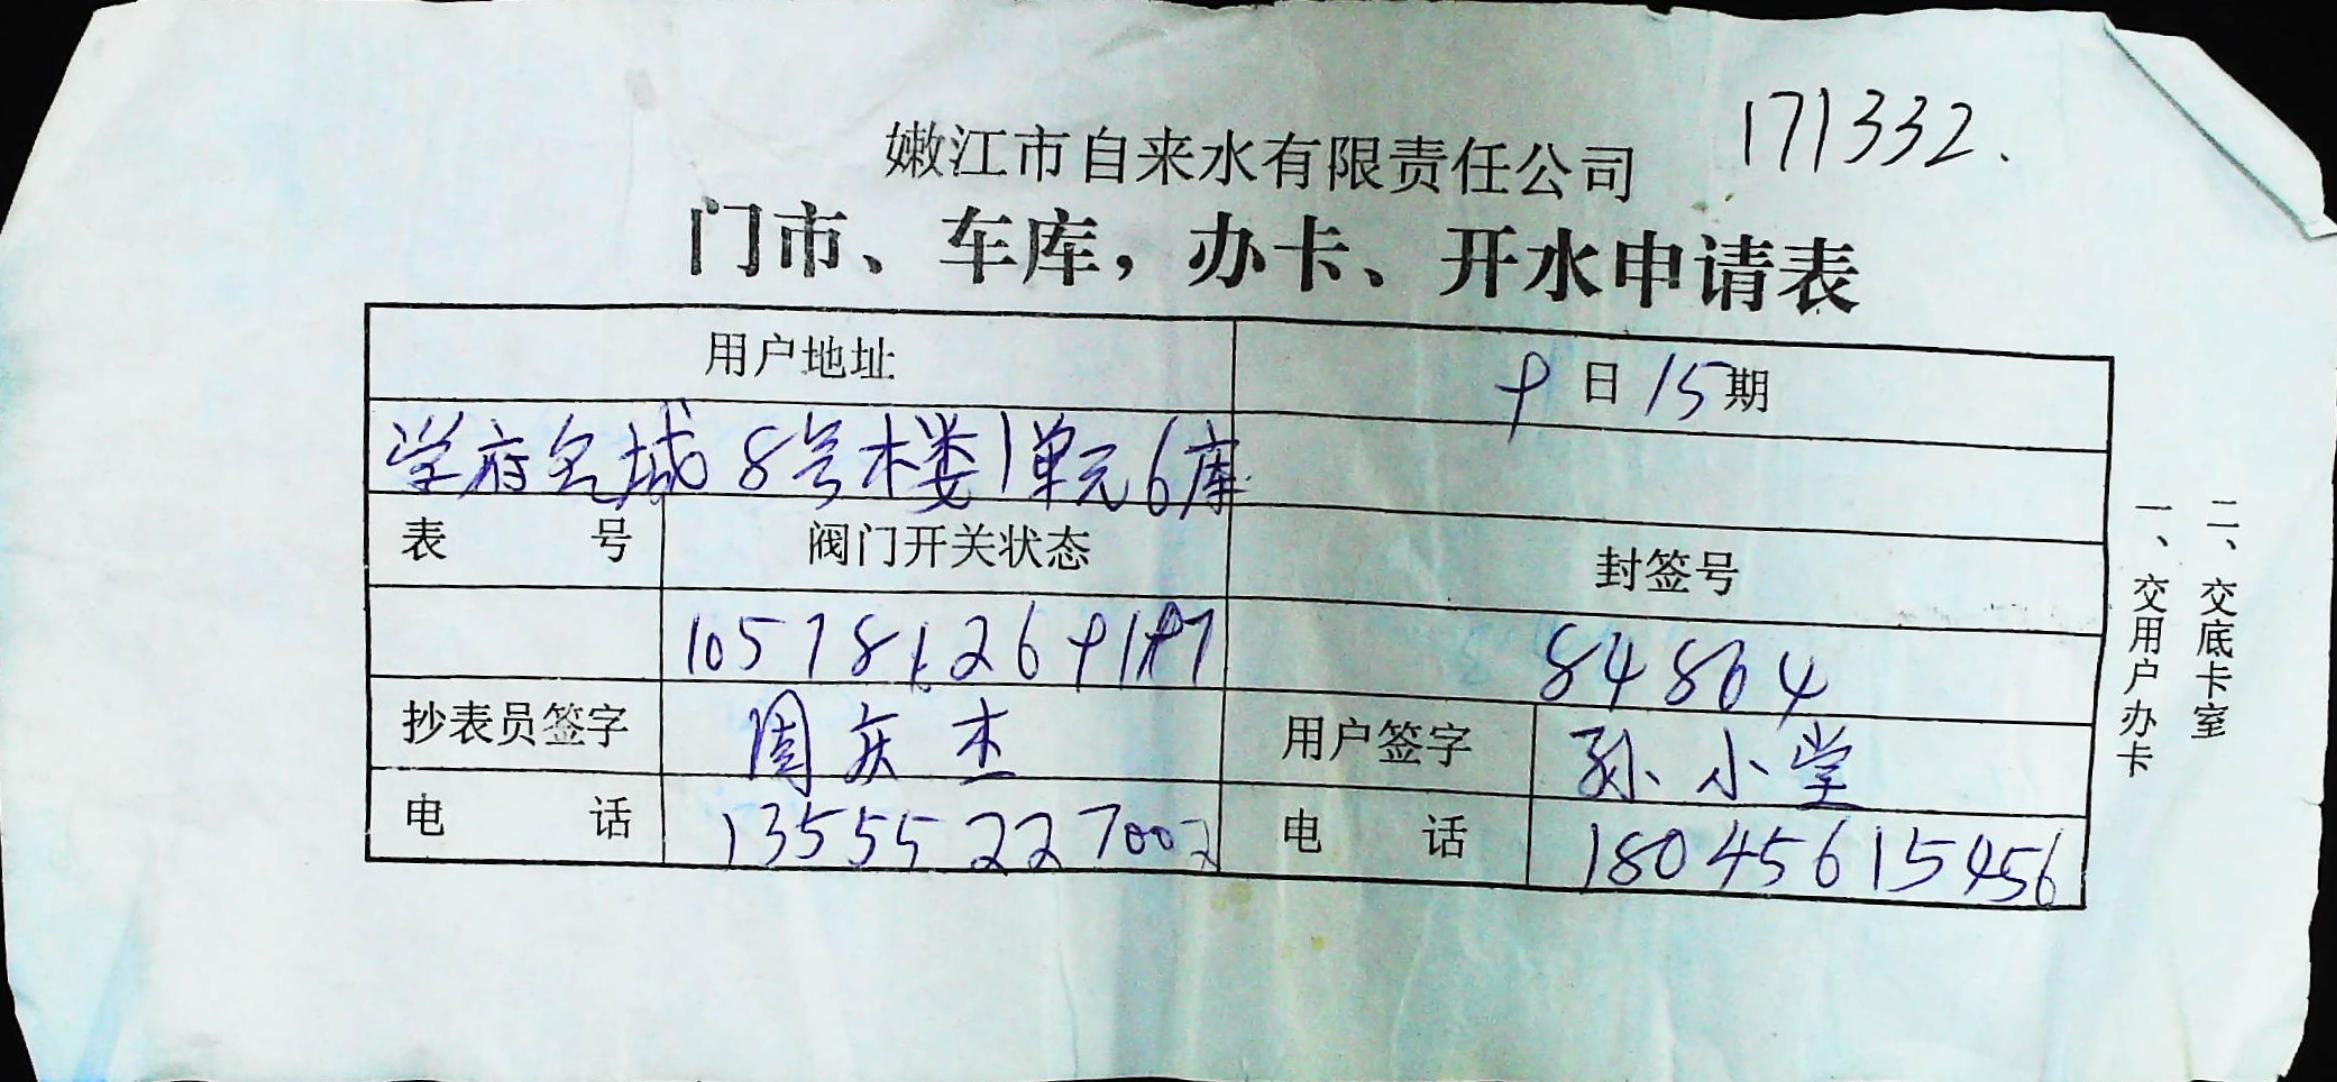 171332.
嫩江市自来水有限责任公司
门市、车库，办卡、开水申请表
用户地址
9日15期
学府名城8号楼1单元6库
表 号 阀门开关状态 封签号
105781269 84864
抄表员签字 周庆杰 用户签字 孙小堂
电 话 13555227002 电 话 18045615456
一、交用户办卡
二、交底卡室